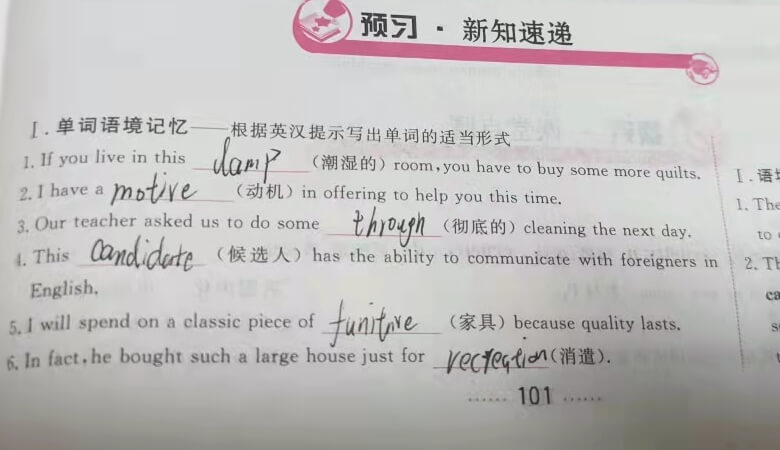 预习·新知速递
Ⅰ.单词语境记忆——根据英汉提示写出单词的适当形式
1. If you live in this damp (潮湿的) room, you have to buy some more quilts.
2. I have a motive (动机) in offering to help you this time.
3. Our teacher asked us to do some through (彻底的) cleaning the next day.
4. This Candidate (候选人) has the ability to communicate with foreigners in
English.
5. I will spend on a classic piece of funitrive (家具) because quality lasts.
6. In fact, he bought such a large house just for recreation (消遣).
…… 101 ……
Ⅰ.语
1. The
to
2. Th
ca